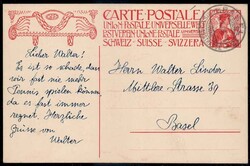 CARTE POSTALE
UNION POSTALE UNIVERSELLE
WELTPOSTVEREIN UNIONE POSTALE
SCHWEIZ · SUISSE · SVIZZERA
Lieber Walter!
Es ist so schade, dass
wir fast nie mehr
Tennis spielen können,
da es fast immer
regnet. Herzliche
Grüsse von
Walter
Herrn Walter
Mittlere Strasse 39
Basel